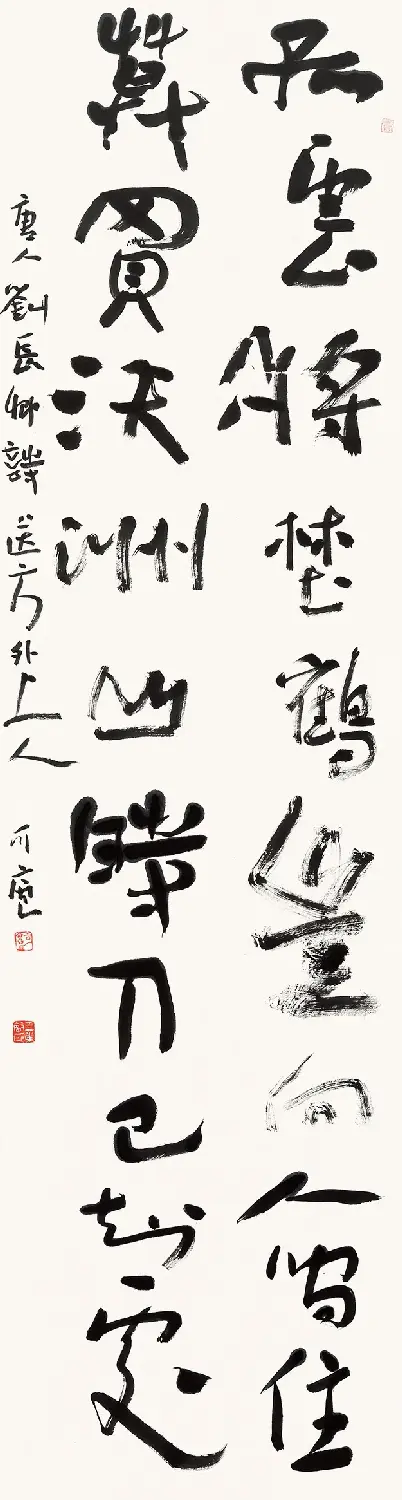 孤雲將埜鶴豈向人間住
莫買沃洲山時人已知處
唐人劉長卿詩送方外上人